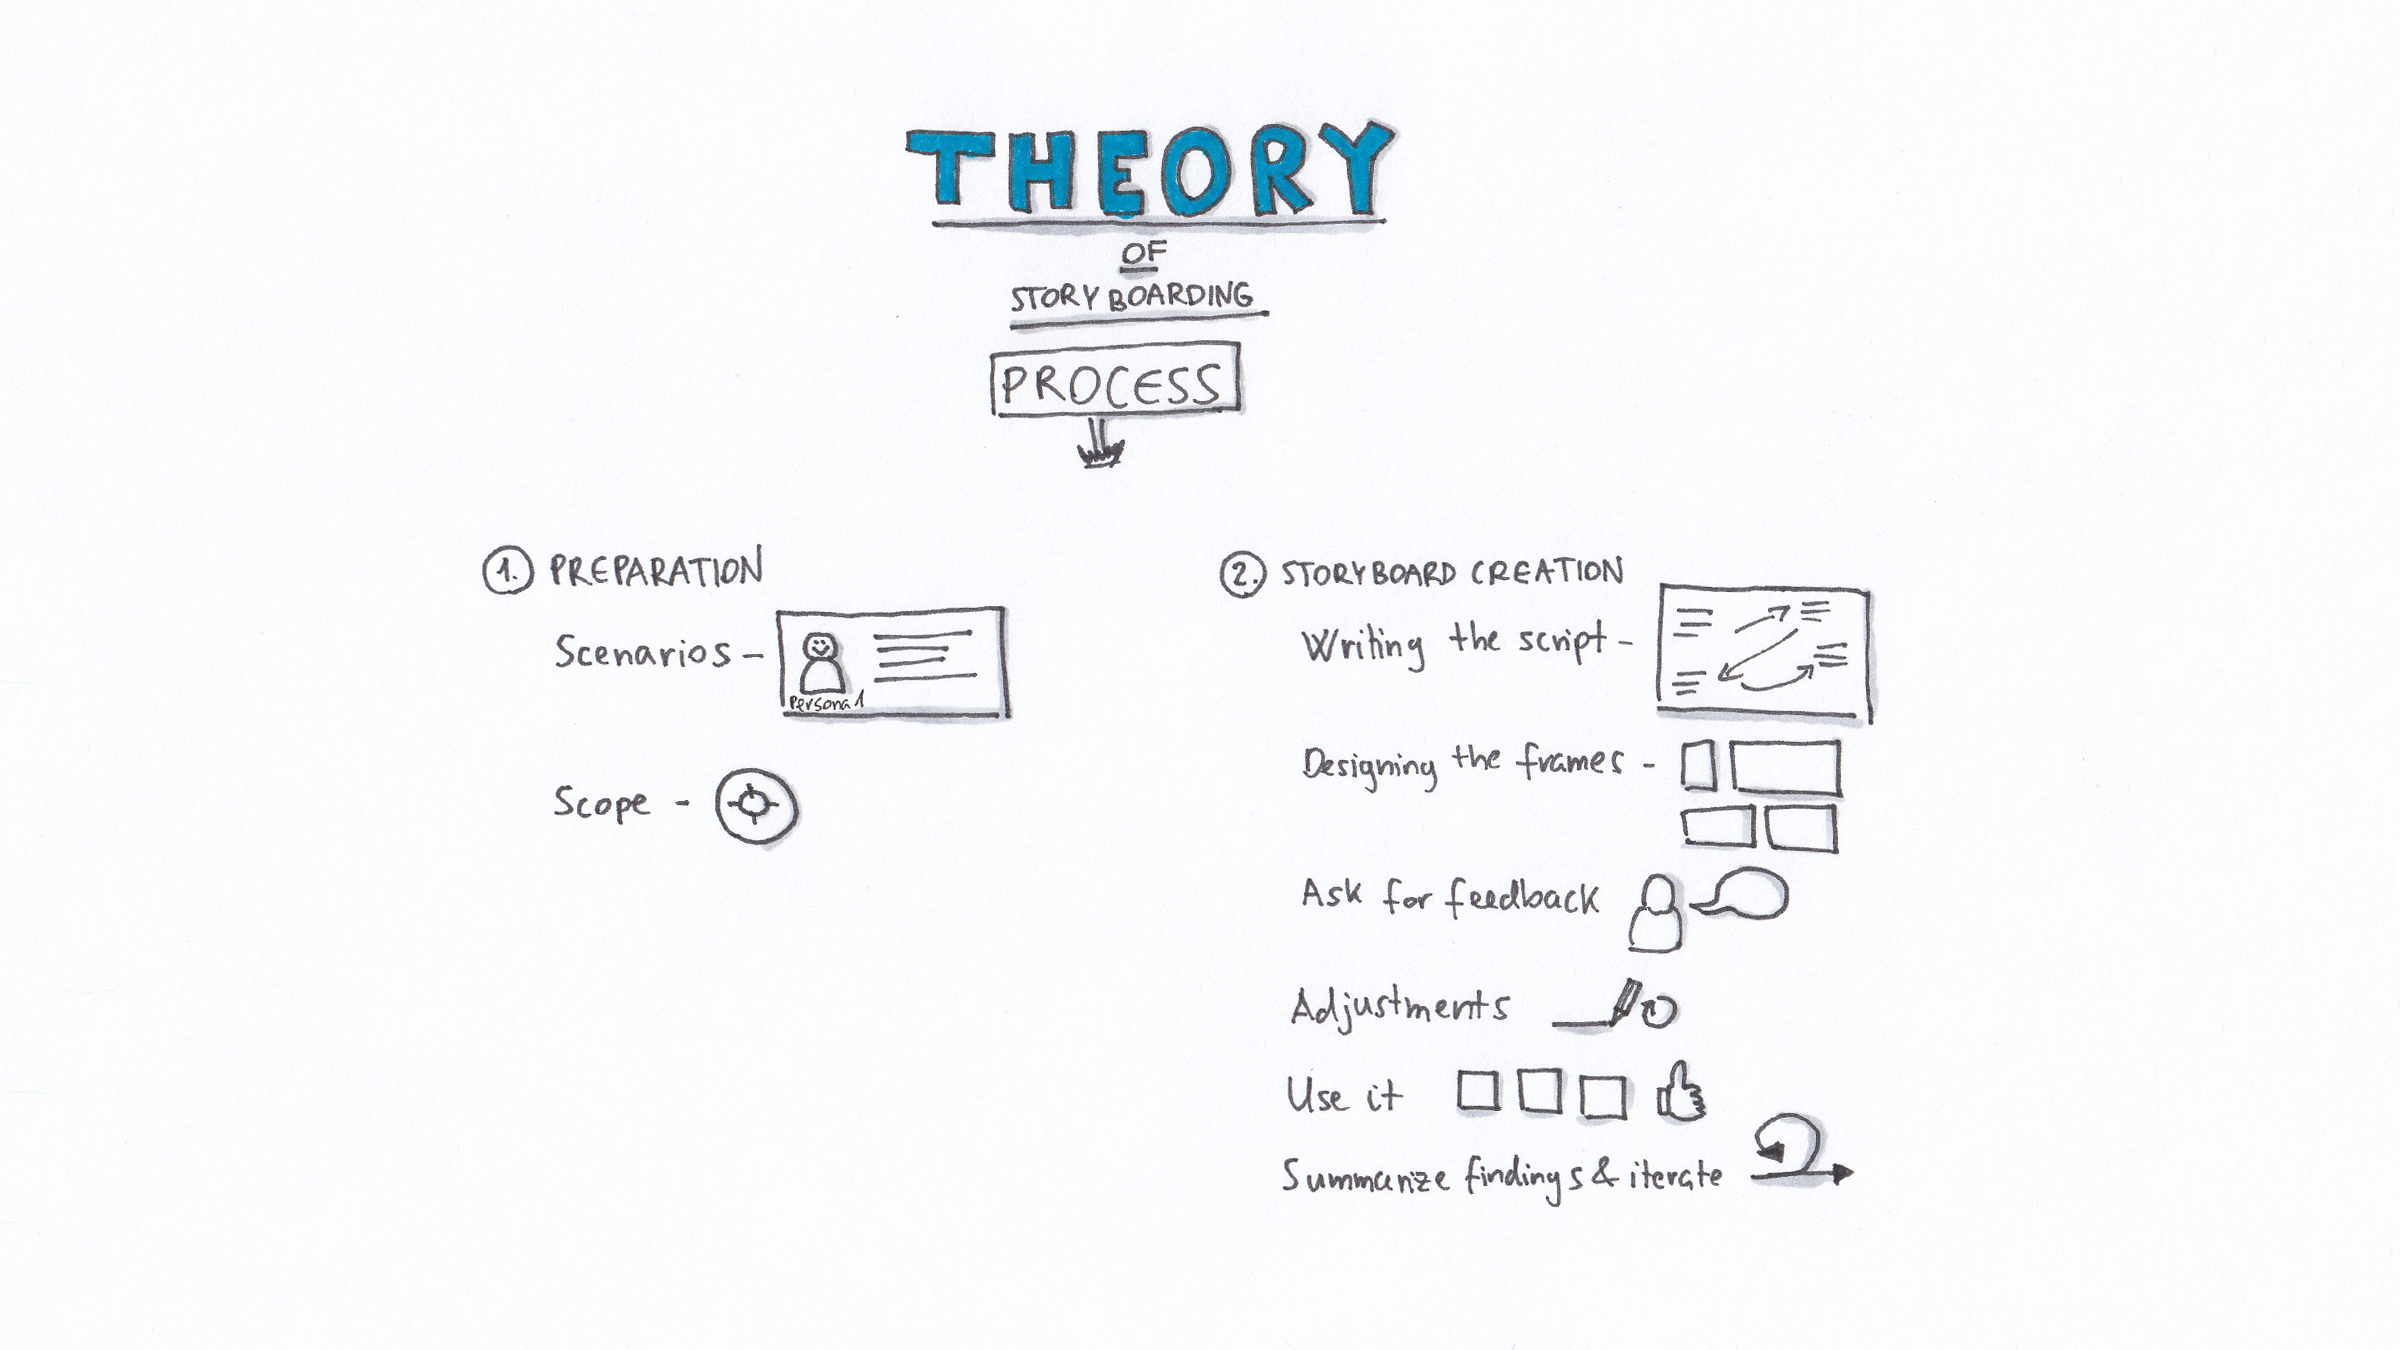 THEORY
OF
STORYBOARDING
PROCESS
1. PREPARATION
Scenarios -
Persona 1
Scope -
2. STORYBOARD CREATION
Writing the script -
Designing the frames -
Ask for feedback
Adjustments
Use it
Summarize findings & iterate